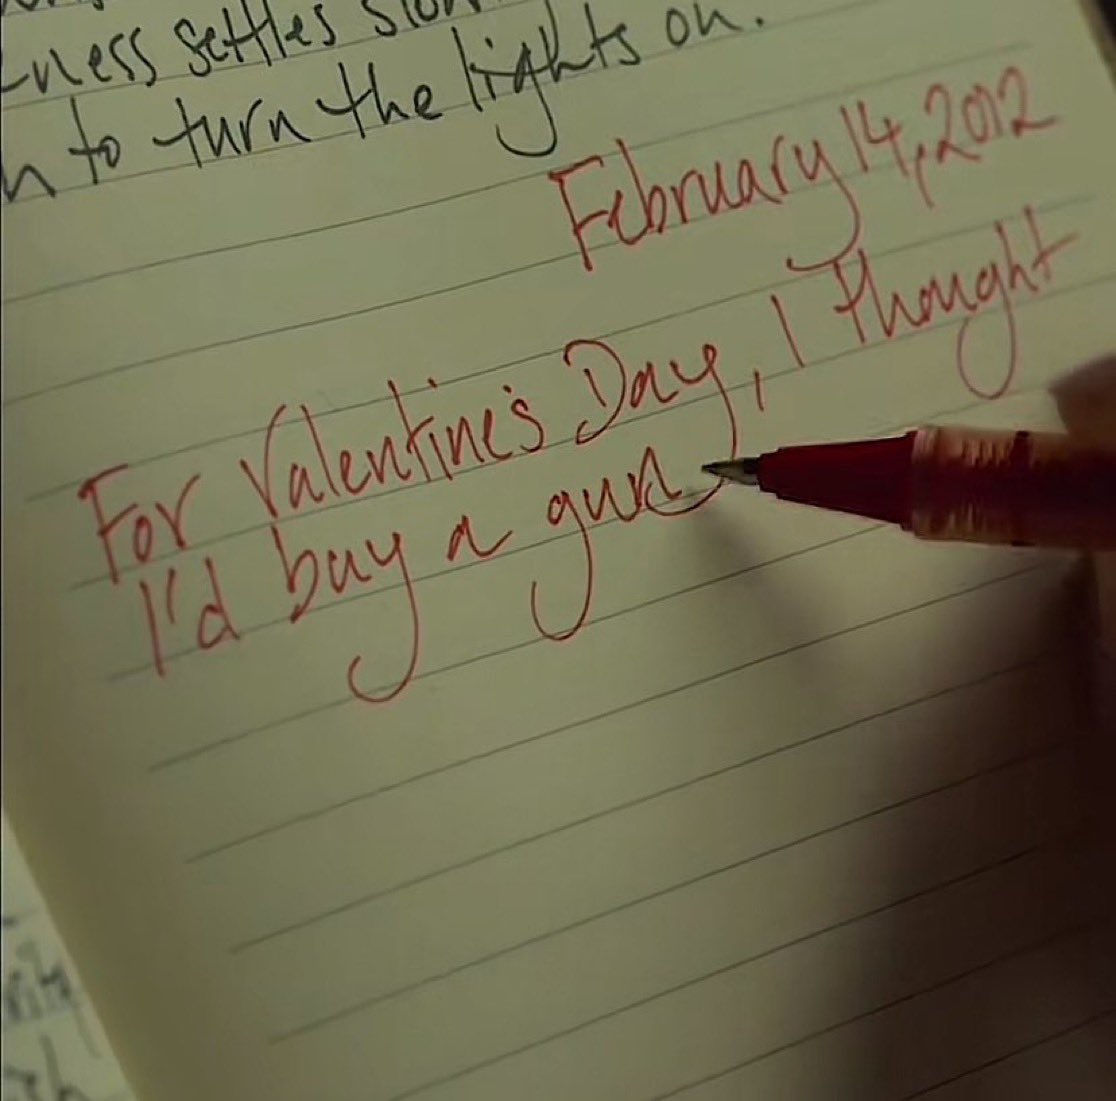 settles
to turn the lights on.
February 14, 2012
For Valentine's Day, I thought
I'd buy a gun